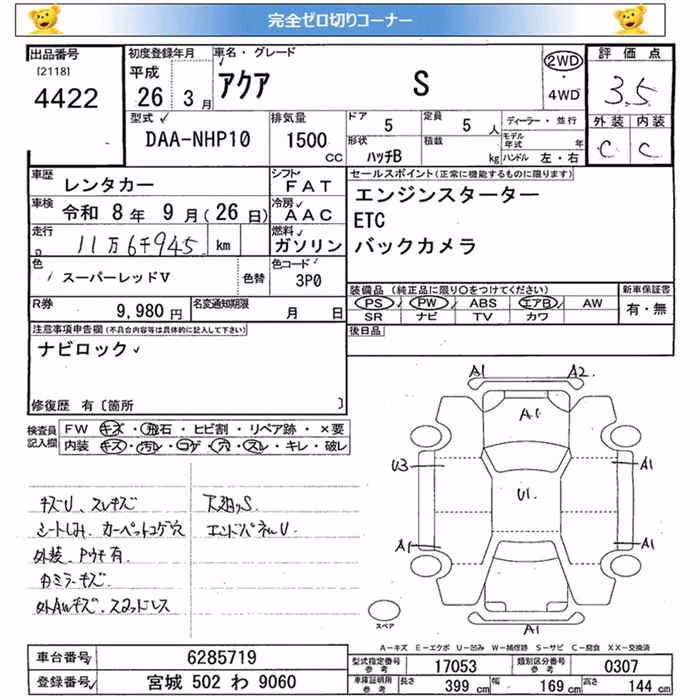 完全ゼロ切りコーナー
出品番号
[2118]
4422
初度登録年月
平成
26 3月
車名・グレード
アクア S
2WD
・
4WD
評価点
3.5
外装 内装
C C
型式
DAA-NHP10
排気量
1500
CC
ドア
5
定員
5 人
形状
ハッチB
積載
kg
ディーラー・並行
モデル年式 年
ハンドル 左・右
車歴
レンタカー
シフト
FAT
車検
令和 8年 9月(26日)
冷房
AAC
走行
11万6千945 km
燃料
ガソリン
色
スーパーレッドV
色替
色コード
3P0
R券
9,980 円
名変通知期限
月 日
セールスポイント(正常に機能するものに限ります)
エンジンスターター
ETC
バックカメラ
装備品 (純正品に限り○をつけてください)
PS PW ABS エアB AW
SR ナビ TV カワ
新車保証書
有・無
後日品
注意事項申告欄(不具合内容等は具体的に記入して下さい)
ナビロック
修復歴 有〔箇所 〕
検査員記入欄
FW キズ・飛石・ヒビ割・リペア跡・×要
内装 キズ・汚レ・コゲ・穴・スレ・キレ・破レ
キズU、スレキズ
シートしみ、カーペットコゲ穴
外装、Pウキ有
カミラーキズ
外AWキズ、スタッドレス
エンドパネルU
A1 A2
A1
U3 A1
U1
A1 A1
A1
スペア
A-キズ E-エクボ U-凹み W-補修跡 S-サビ C-腐食 XX-交換済
車台番号
6285719
登録番号
宮城 502 わ 9060
型式指定番号
参考
17053
類別区分番号
参考
0307
車庫証明用
参考
長さ 399 cm
幅 169 cm
高さ 144 cm